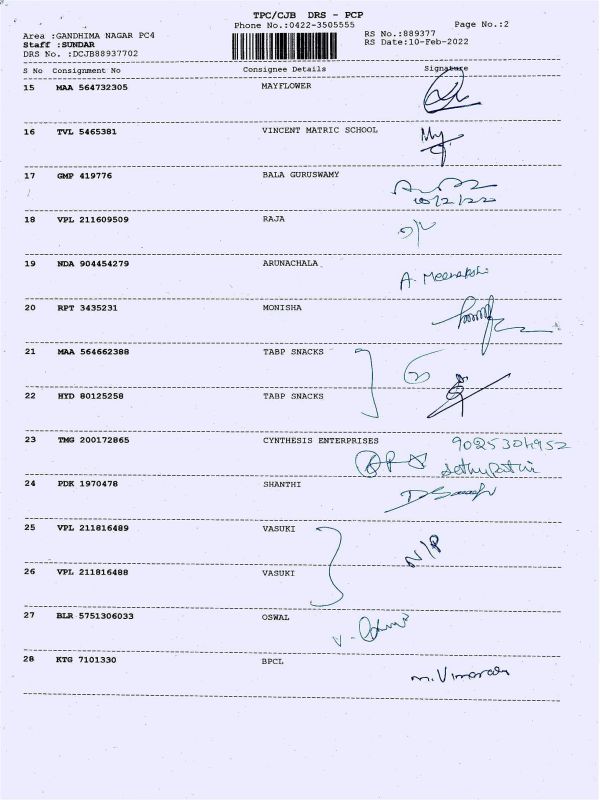 TPC/CJB DRS - PCP
Phone No.:0422-3505555
Page No.:2
Area :GANDHIMA NAGAR PC4
RS No.:889377
Staff :SUNDAR
RS Date:10-Feb-2022
DRS No. :DCJB88937702
S No Consignment No Consignee Details Signature
15 MAA 564732305 MAYFLOWER
16 TVL 5465381 VINCENT MATRIC SCHOOL
17 GMP 419776 BALA GURUSWAMY
10/2/22
18 VPL 211609509 RAJA
19 NDA 904454279 ARUNACHALA
A. Meenakshi
20 RPT 3435231 MONISHA
21 MAA 564662388 TABP SNACKS
22 HYD 80125258 TABP SNACKS
23 TMG 200172865 CYNTHESIS ENTERPRISES 9025304952
Sethupathi
24 PDK 1970478 SHANTHI
25 VPL 211816489 VASUKI
N/P
26 VPL 211816488 VASUKI
27 BLR 5751306033 OSWAL
28 KTG 7101330 BPCL